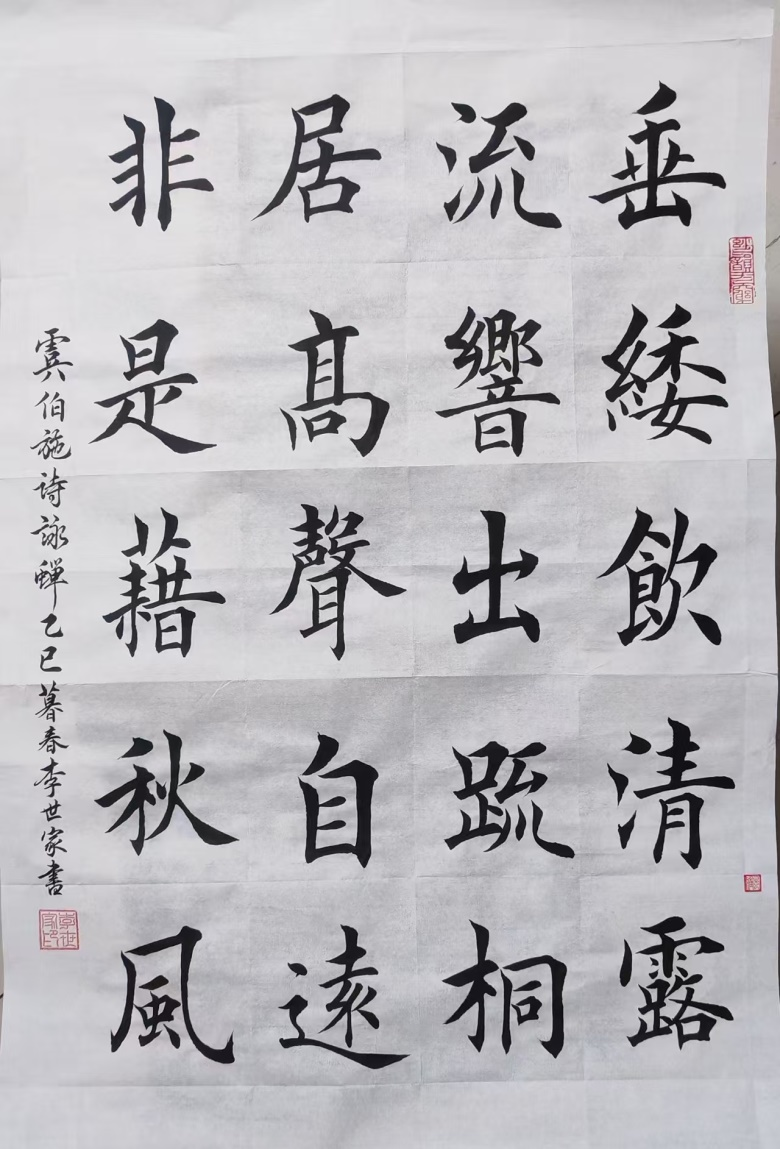 垂緌飲清露
流響出疏桐
居高聲自遠
非是藉秋風
虞伯施詩詠蟬乙巳暮春李世家書
李世家印